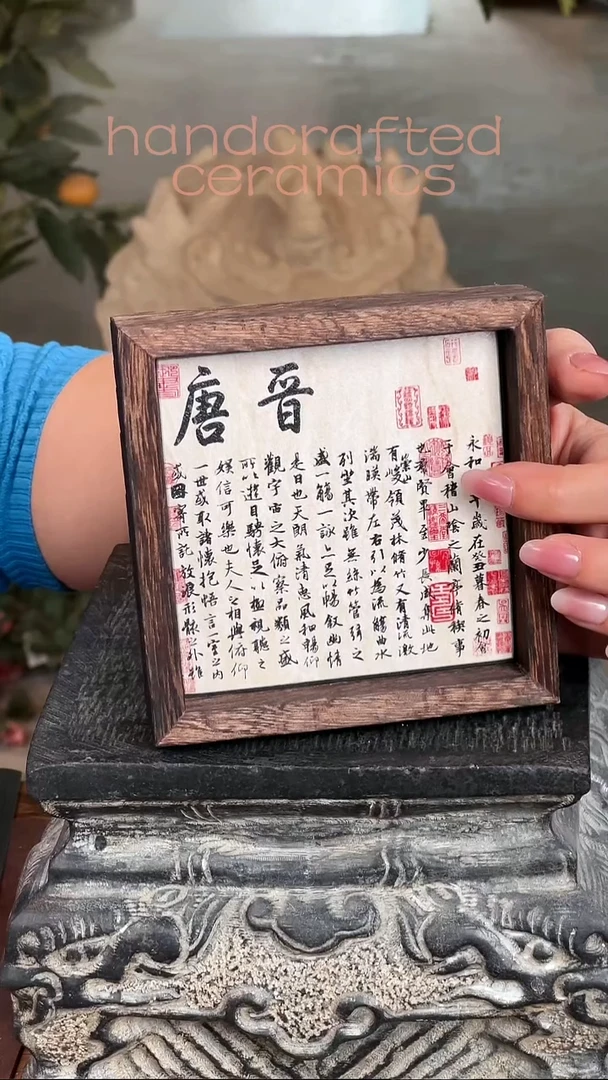 handcrafted
ceramics
晉唐
永和年歲在癸丑暮春之初會
于會稽山陰之蘭亭脩稧事
也羣賢畢至少長咸集此地
有崇山峻領茂林脩竹又有清流激
湍暎帶左右引以為流觴曲水
列坐其次雖無絲竹管弦之
盛一觴一詠亦足以暢敘幽情
是日也天朗氣清惠風和暢仰
觀宇宙之大俯察品類之盛
所以遊目騁懷足以極視聽之
娛信可樂也夫人之相與俯仰
一世或取諸懷抱悟言一室之內
或因寄所託放浪形骸之外雖